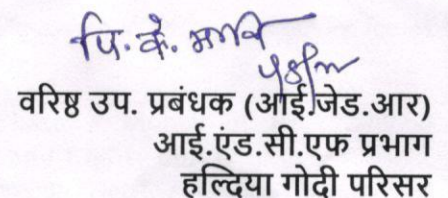 पि. के. माजि
वरिष्ठ उप. प्रबंधक (आई.जेड.आर)
आई.एंड.सी.एफ प्रभाग
हल्दिया गोदी परिसर